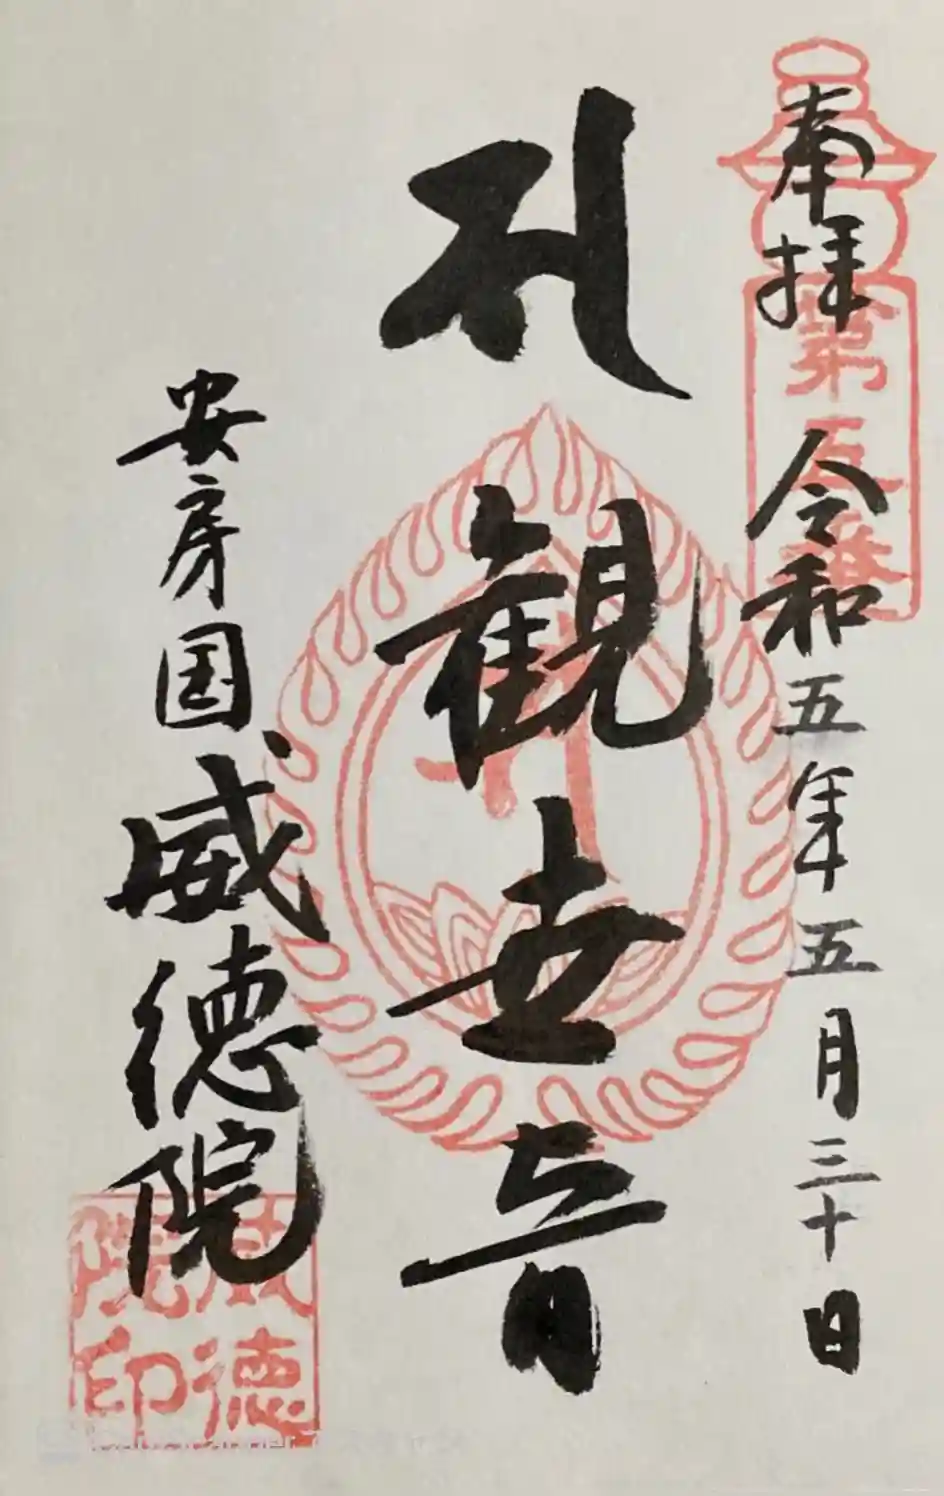 奉拝 令和五年五月三十日
𑖭 観世音
安房国 威徳院
威徳院印